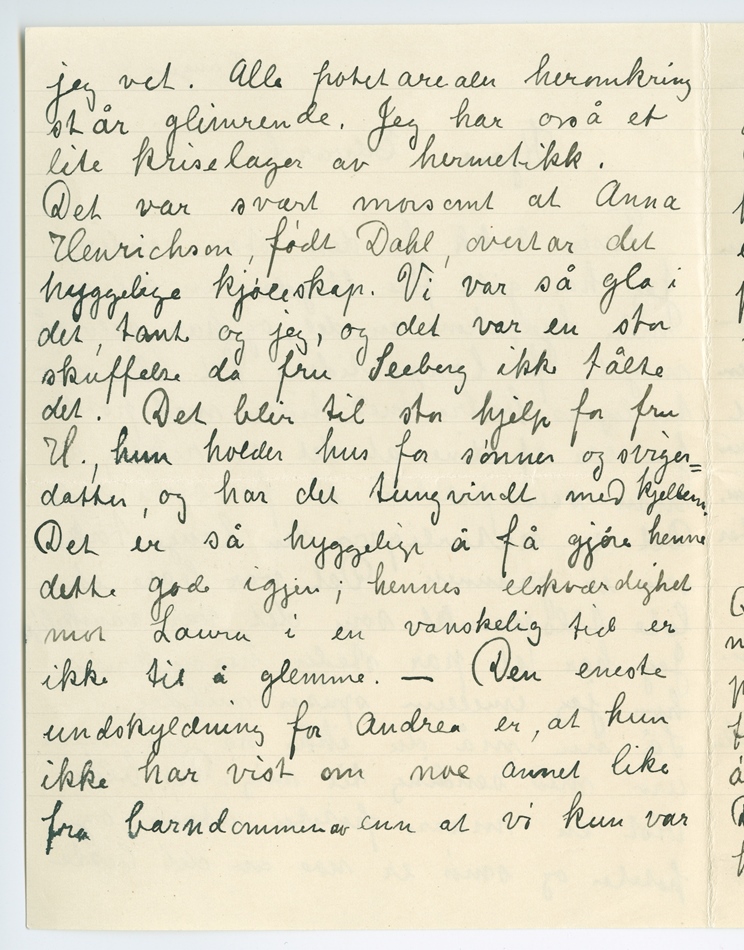 jeg vet. Alle potetarealer heromkring
står glimrende. Jeg har også et
lite kriselager av hermetikk.
Det var svært morsomt at Anna
Henrichson, født Dahl, overtar det
hyggelige kjøleskap. Vi var så gla i
det, tante og jeg, og det var en stor
skuffelse da fru Seeberg ikke tålte
det. Det blir til stor hjelp for fru
H., hun holder hus for sønner og sviger=
datter, og har det tungvindt med kjelleren.
Det er så hyggelig å få gjøre henne
dette gode igjen; hennes elskværdighet
mot Laura i en vanskelig tid er
ikke til å glemme. — Den eneste
undskyldning for Andrea er, at hun
ikke har vist om noe annet like
fra barndommen av enn at vi kun var